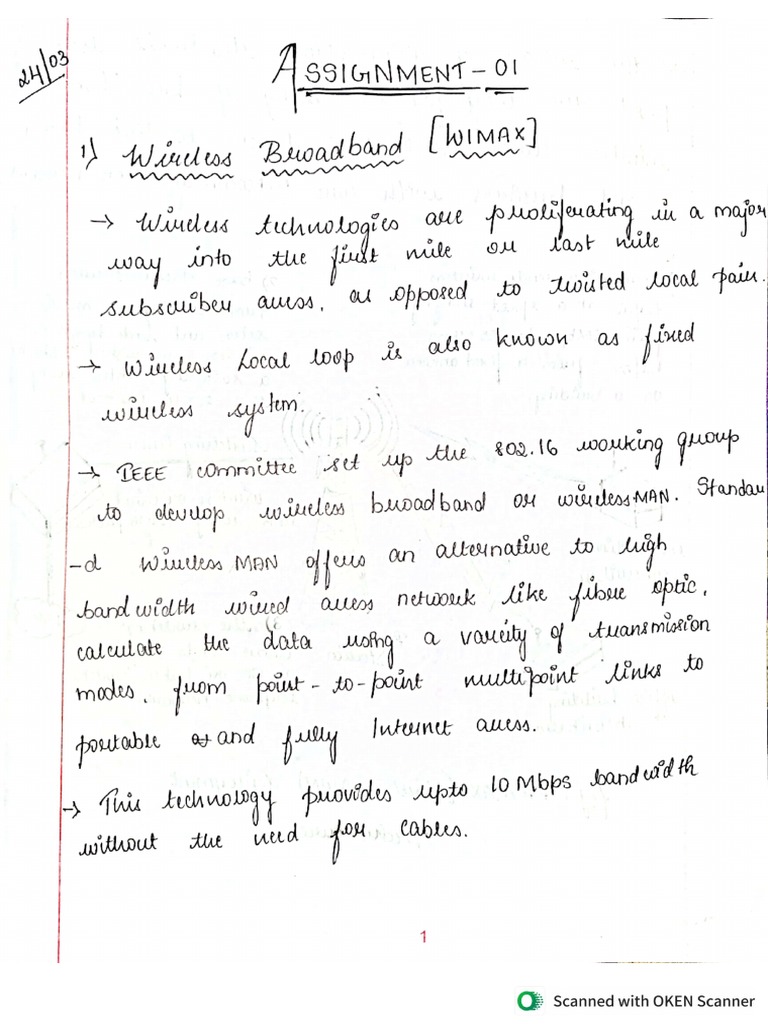 24/03
ASSIGNMENT-01
1) Wireless Broadband [WIMAX]
→ Wireless technologies are proliferating in a major
way into the first mile or last mile
subscriber access, as opposed to twisted local pair.
→ Wireless Local loop is also known as fixed
wireless system.
→ IEEE committee set up the 802.16 working group
to develop wireless broadband or wirelessMAN. Standar
-d Wireless MAN offers an alternative to high
bandwidth wired access network like fibre optic,
calculate the data using a variety of transmission
modes, from point-to-point multipoint links to
portable and fully Internet access.
→ This technology provides upto 10 Mbps bandwidth
without the need for cables.
1
Scanned with OKEN Scanner